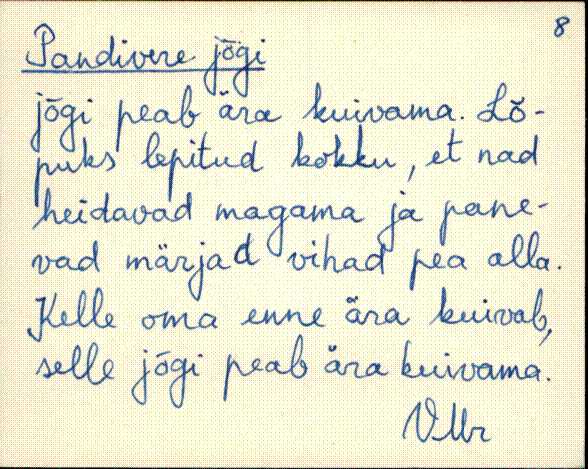 8
Pandivere jõgi
jõgi peab ära kuivama. Lõ-
puks lepitud kokku, et nad
heidavad magama ja pane-
vad märjad vihad pea alla.
Kelle oma enne ära kuivab,
selle jõgi peab ära kuivama.